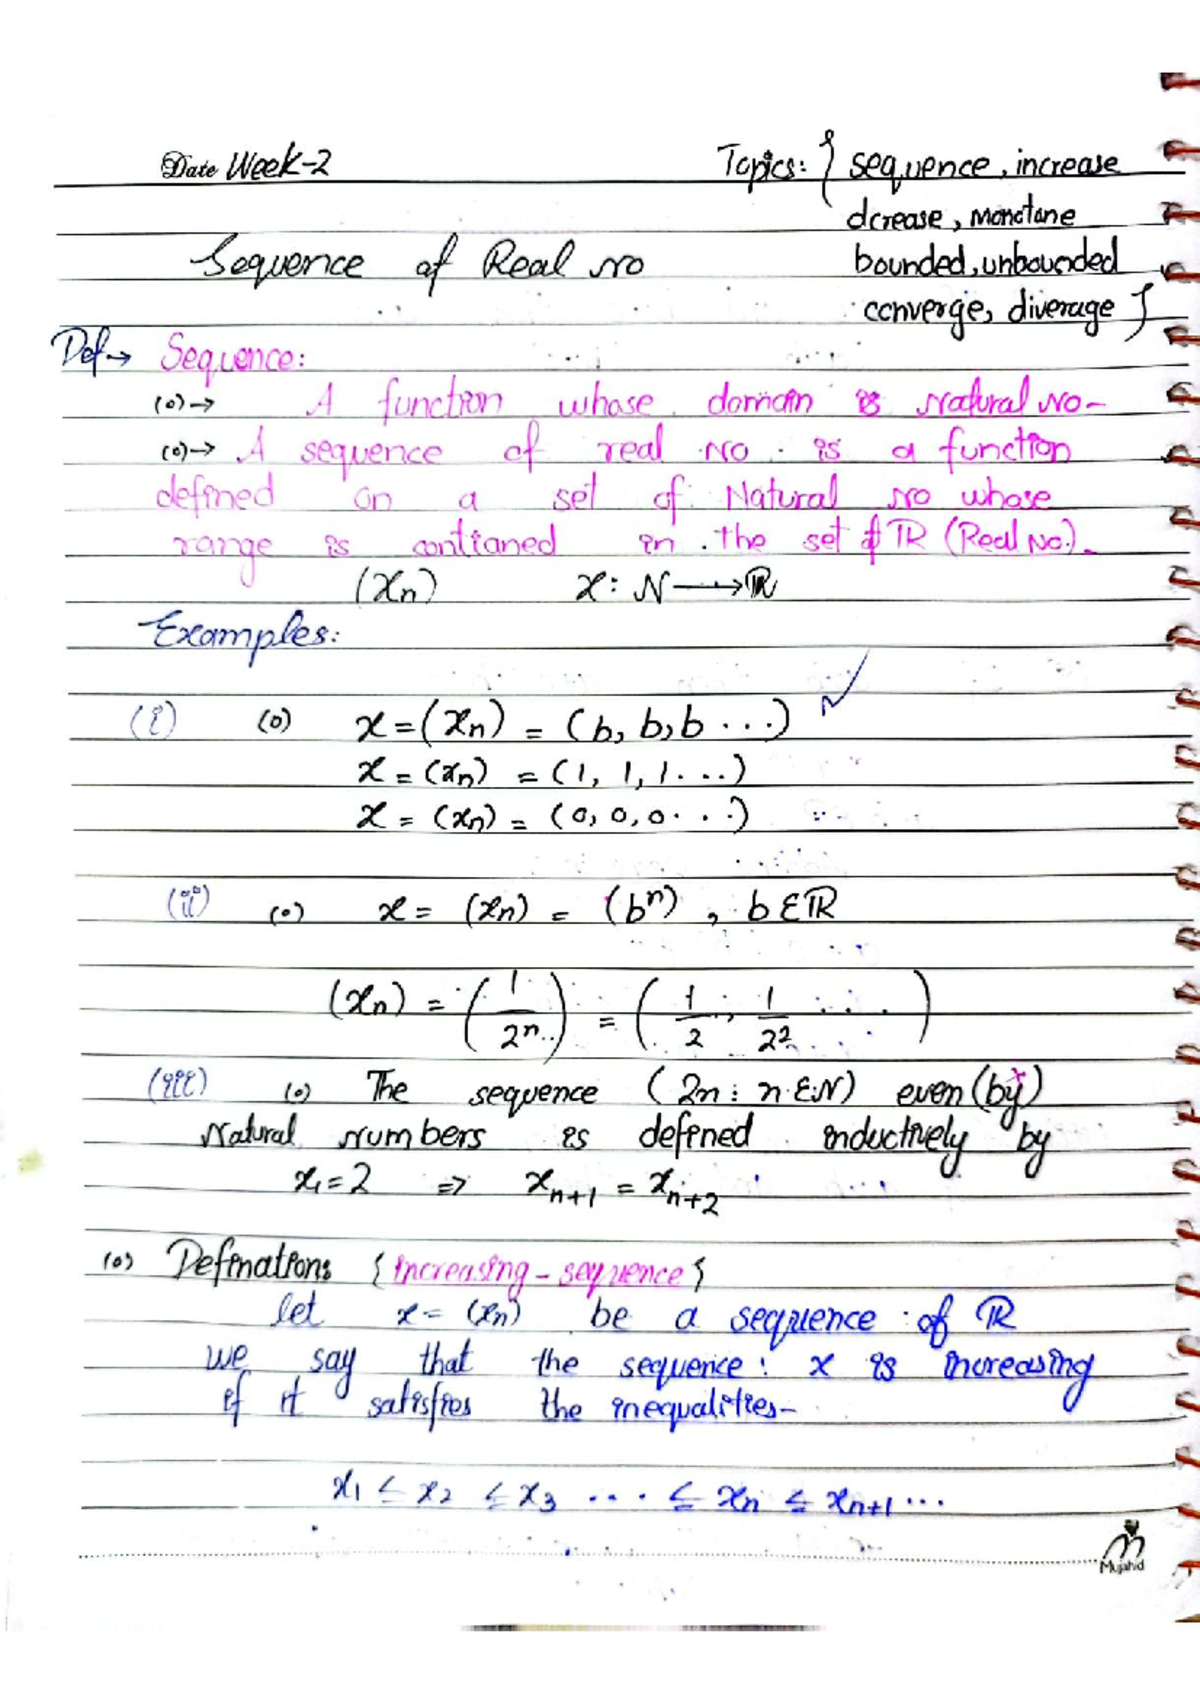 Date Week-2
Topics: { sequence, increase
dcrease, monotone
bounded, unbounded
converge, diverage }
Sequence of Real no
Def→ Sequence:
(o)→ A function whose domain is Natural No-
(o)→ A sequence of real No. is a function
defined on a set of Natural no whose
range is contianed in the set of ℝ (Real No.).
(xn) x: N⟶ℝ
Examples:
(i) (o) x=(xn) = (b, b, b ...) ✓
x = (xn) = (1, 1, 1....)
x = (xn) = (0, 0, 0....)
(ii) (o) x = (xn) = (bⁿ), b ∈ ℝ
(xn) = (1/2ⁿ) = (1/2, 1/2² ....)
(iii) (o) The sequence (2n : n ∈ N) even (by)
Natural Numbers is defined inductively by
x₁ = 2 ⇒ xn+1 = xn+2
(o) Definations {increasing-sequence}
let x = (xn) be a sequence of ℝ
we say that the sequence: x is increasing
if it satisfies the inequalities-
x₁ ≤ x₂ ≤ x₃ ... ≤ xn ≤ xn+1 ...
Mujahid